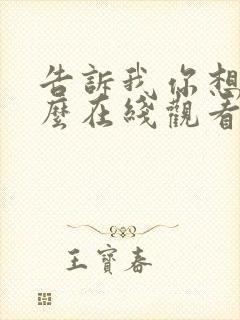 告訴我 你想
麼在綫觀看
王寶春